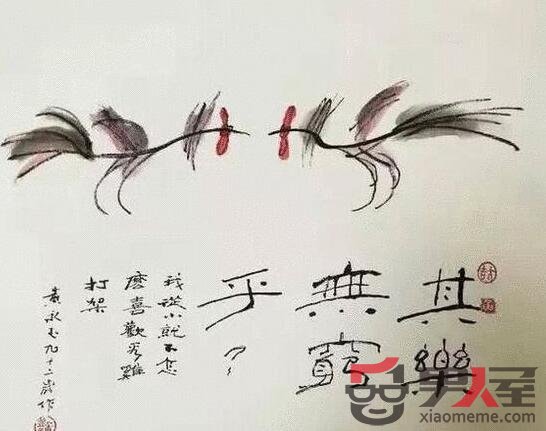 其樂
無窮
乎??
我從小就不怎
麼喜歡看雞
打架
黃永玉九十二歲作
xiaomeme.com